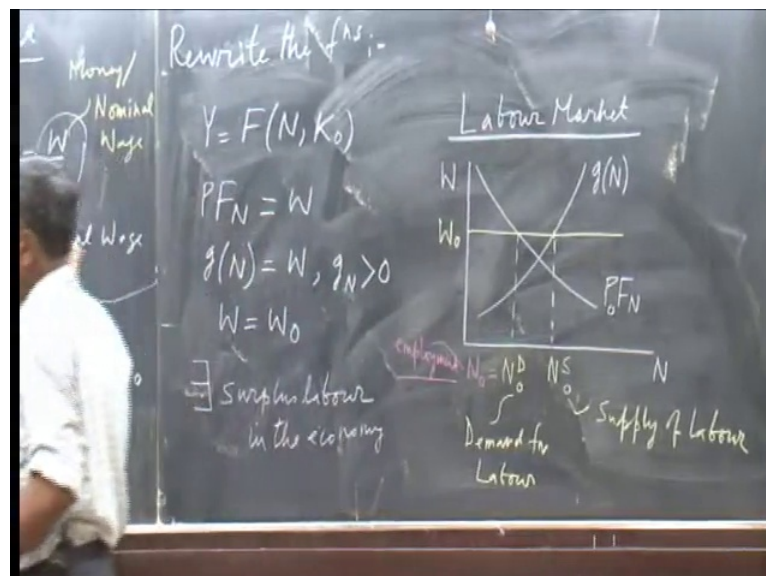 Money/
Nominal
Wage
W
Wage
Rewrite the fns:-
Y = F(N, K₀)
PF_N = W
g(N) = W, g_N > 0
W = W₀
∃ Surplus labour
in the economy
Labour Market
W
g(N)
W₀
P₀F_N
employment N₀ = N₀ᴰ N₀ˢ N
Demand for
Labour
Supply of Labour